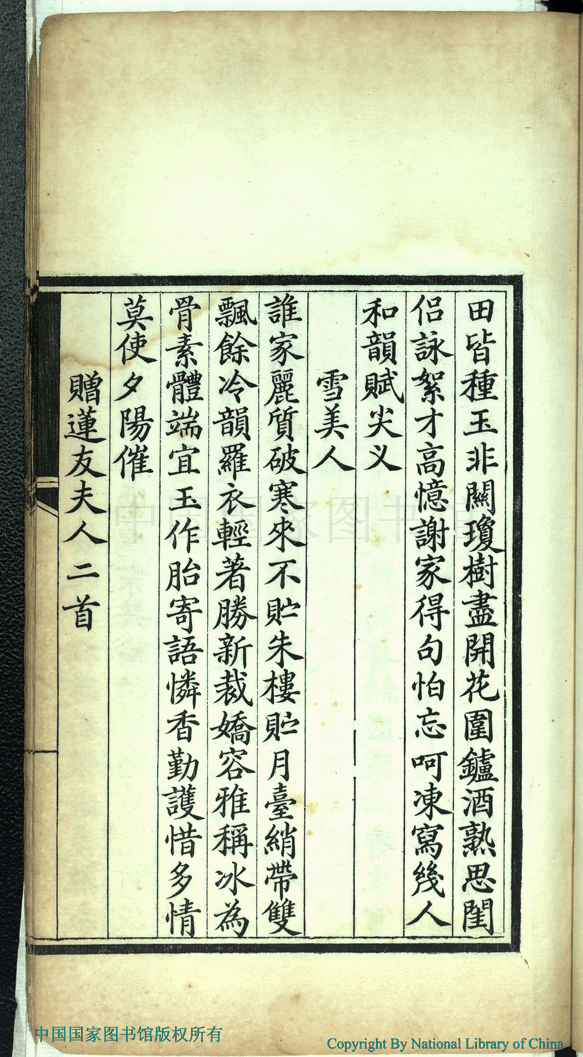 田皆種玉非關瓊樹盡開花圍鑪酒熟思閨
侣詠絮才高憶謝家得句怕忘呵凍寫幾人
和韻賦尖义
雪美人
誰家麗質破寒來不貯朱樓貯月臺綃帶雙
飄餘冷韻羅衣輕著勝新裁嬌容雅稱冰為
骨素體端宜玉作胎寄語憐香勤護惜多情
莫使夕陽催
贈蓮友夫人二首
中国国家图书馆
中国国家图书馆版权所有
Copyright By National Library of China